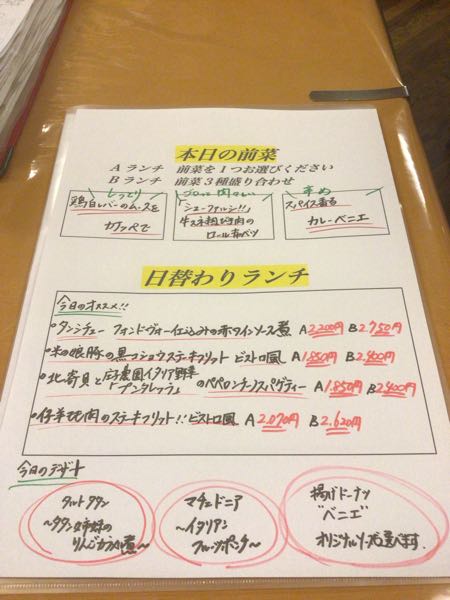 本日の前菜
Aランチ 前菜を1つお選びください
Bランチ 前菜3種盛り合わせ
しっとり
鶏白レバーのムースを
カップで
ゴロッと肉々しい
「シューファルシ!!」
牛スネ粗びき肉の
ロールキャベツ
辛め
スパイス香る
カレーベニエ
日替わりランチ
今日のオススメ!!
・タンシチュー フォンドヴォー仕込みの赤ワインソース煮 A2,200円 B2,750円
・米の娘豚の黒コショウステーキフリット ビストロ風 A1,850円 B2,400円
・北寄貝と庄内農園イタリア野菜
「プンタレッラ」のペペロンチーノスパゲティー A1,850円 B2,400円
・仔羊もも肉のステーキフリット!!ビストロ風 A2,070円 B2,620円
今日のデザート
タルトタタン
~タタン姉妹の
りんごカラメル煮~
マチェドニア
~イタリアン
フルーツポンチ~
揚げドーナツ
"ベニエ"
オリジナルソースも選べます.